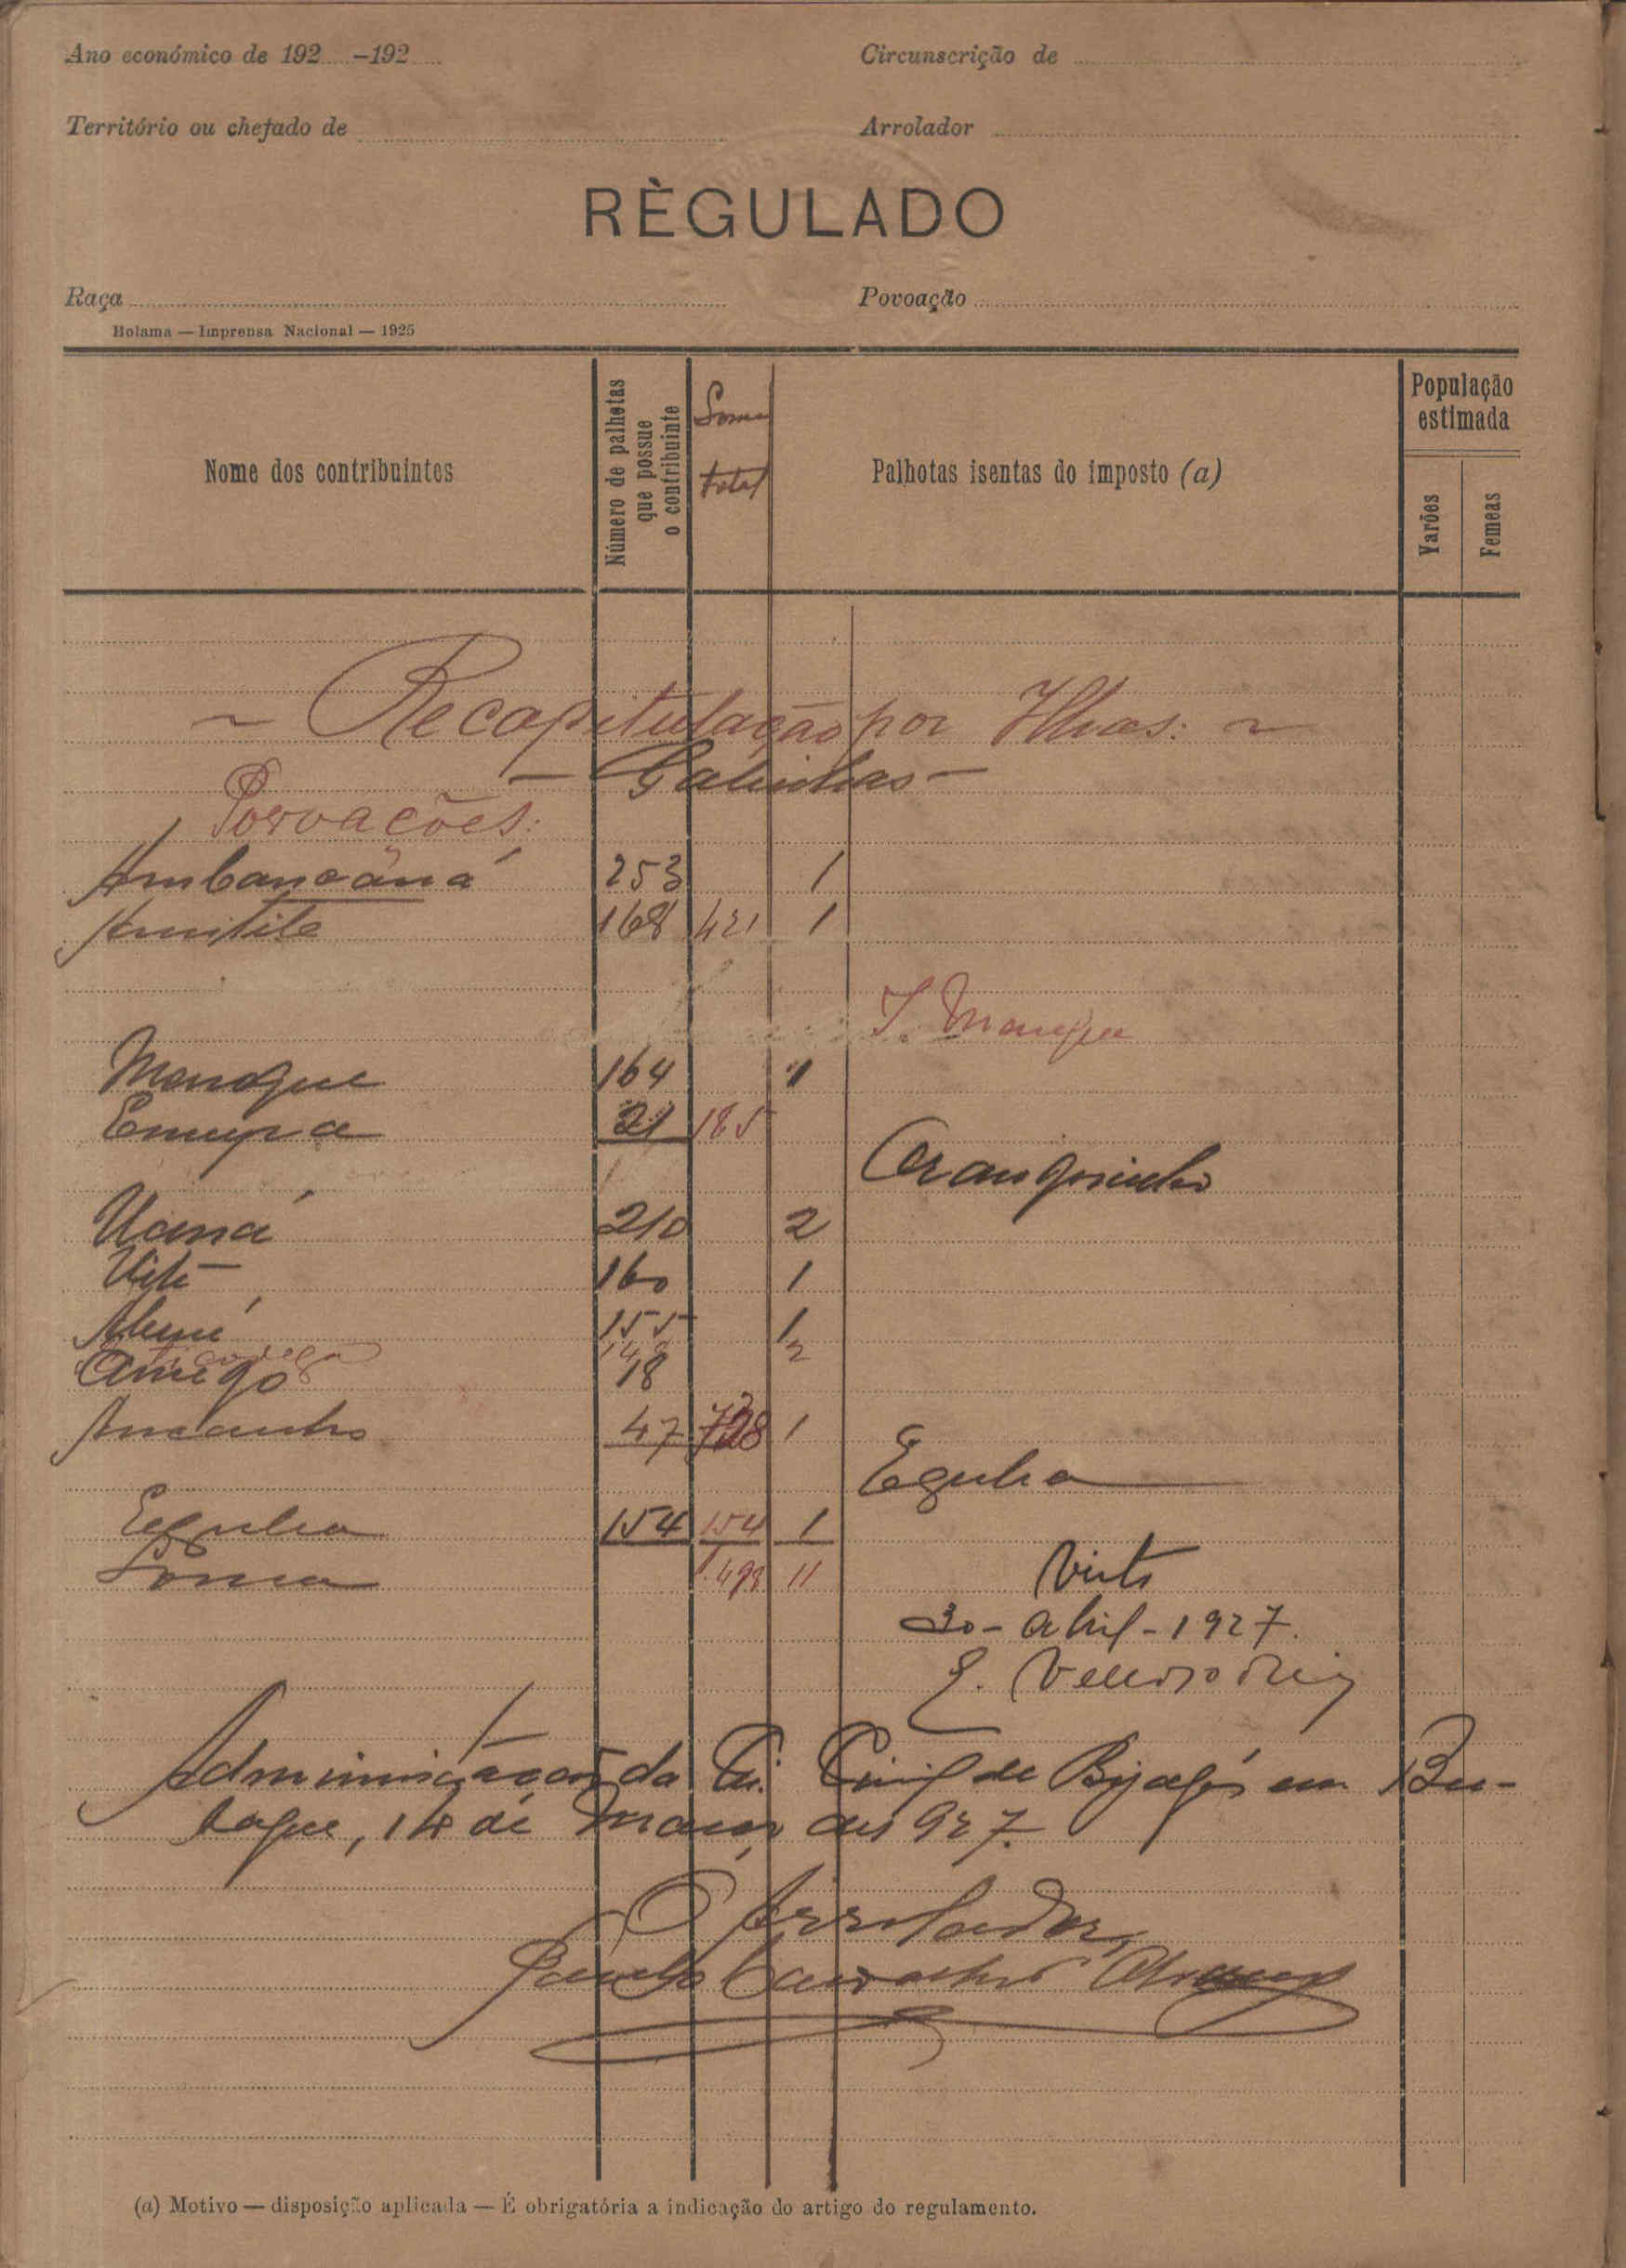 Ano económico de 192.....-192.....
Circunscrição de
Território ou chefado de
Arrolador
RÈGULADO
Raça
Povoação
Bolama — Imprensa Nacional — 1925
Nome dos contribuintes
Número de palhotas que possue o contribuinte
Soma total
Palhotas isentas do imposto (a)
População estimada
Varões
Femeas
~ Recapitulação por Ilhas: ~
— Galinhas —
Povoações:
Ambancaná 253 1
168 421 1
Menegue 164 1
21 185
Uaná 210 2
Vite 160 1
155 1
18
47 728 1
Egulha
Egulha 154 154 1
Soma 1.498 11
Visto
30 - abril - 1927.
E.
Administração da Ci. Civil de Bijagós em Bu-
baque, 18 de Março de 927.
O Arrolador,
Carvalho
(a) Motivo — disposição aplicada — É obrigatória a indicação do artigo do regulamento.